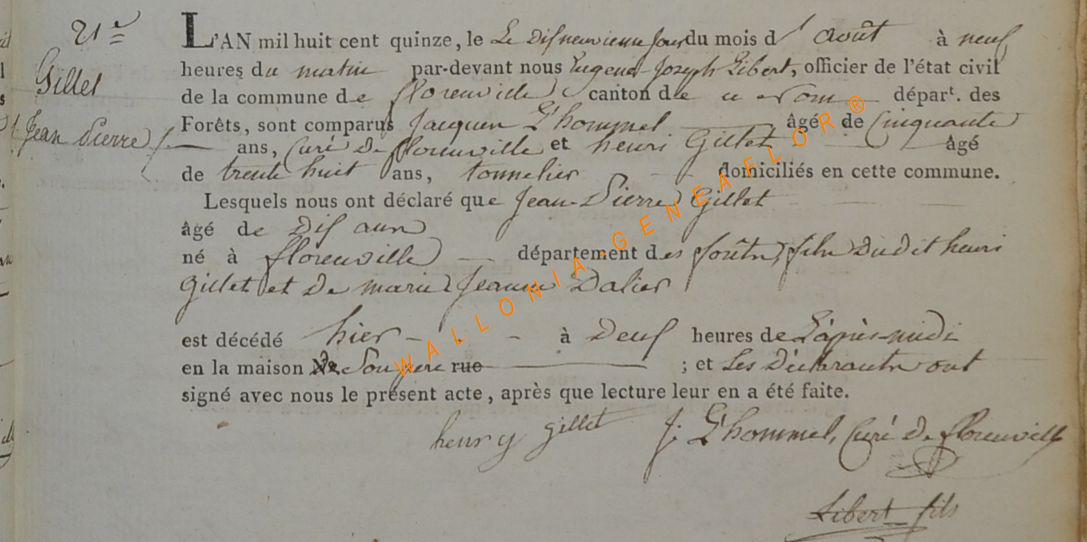 21e
Gillet
Jean Pierre
L'AN mil huit cent quinze, le Le disneuvieme jour du mois d' août à neuf
heures du matin par-devant nous Eugene Joseph Libert, officier de l'état civil
de la commune de florenville canton de départ. des
Forêts, sont comparus Jacques L'hommel âgé de Cinquante
ans, Curé de florenville et henri Gillet âgé
de trente huit ans, tonnelier domiciliés en cette commune.
Lesquels nous ont déclaré que Jean Pierre Gillet
âgé de Dis ans
né à florenville département des forêts, fils Dudit henri
Gillet et De marie Jeanne Dalier
est décédé hier à Deux heures de L'après-midi
en la maison De Son pere rue ; et Les Déclarants ont
signé avec nous le présent acte, après que lecture leur en a été faite.
henry gillet J. L'hommel, Curé de florenville
Libert fils
WALLONIA-GENEAFLOR®